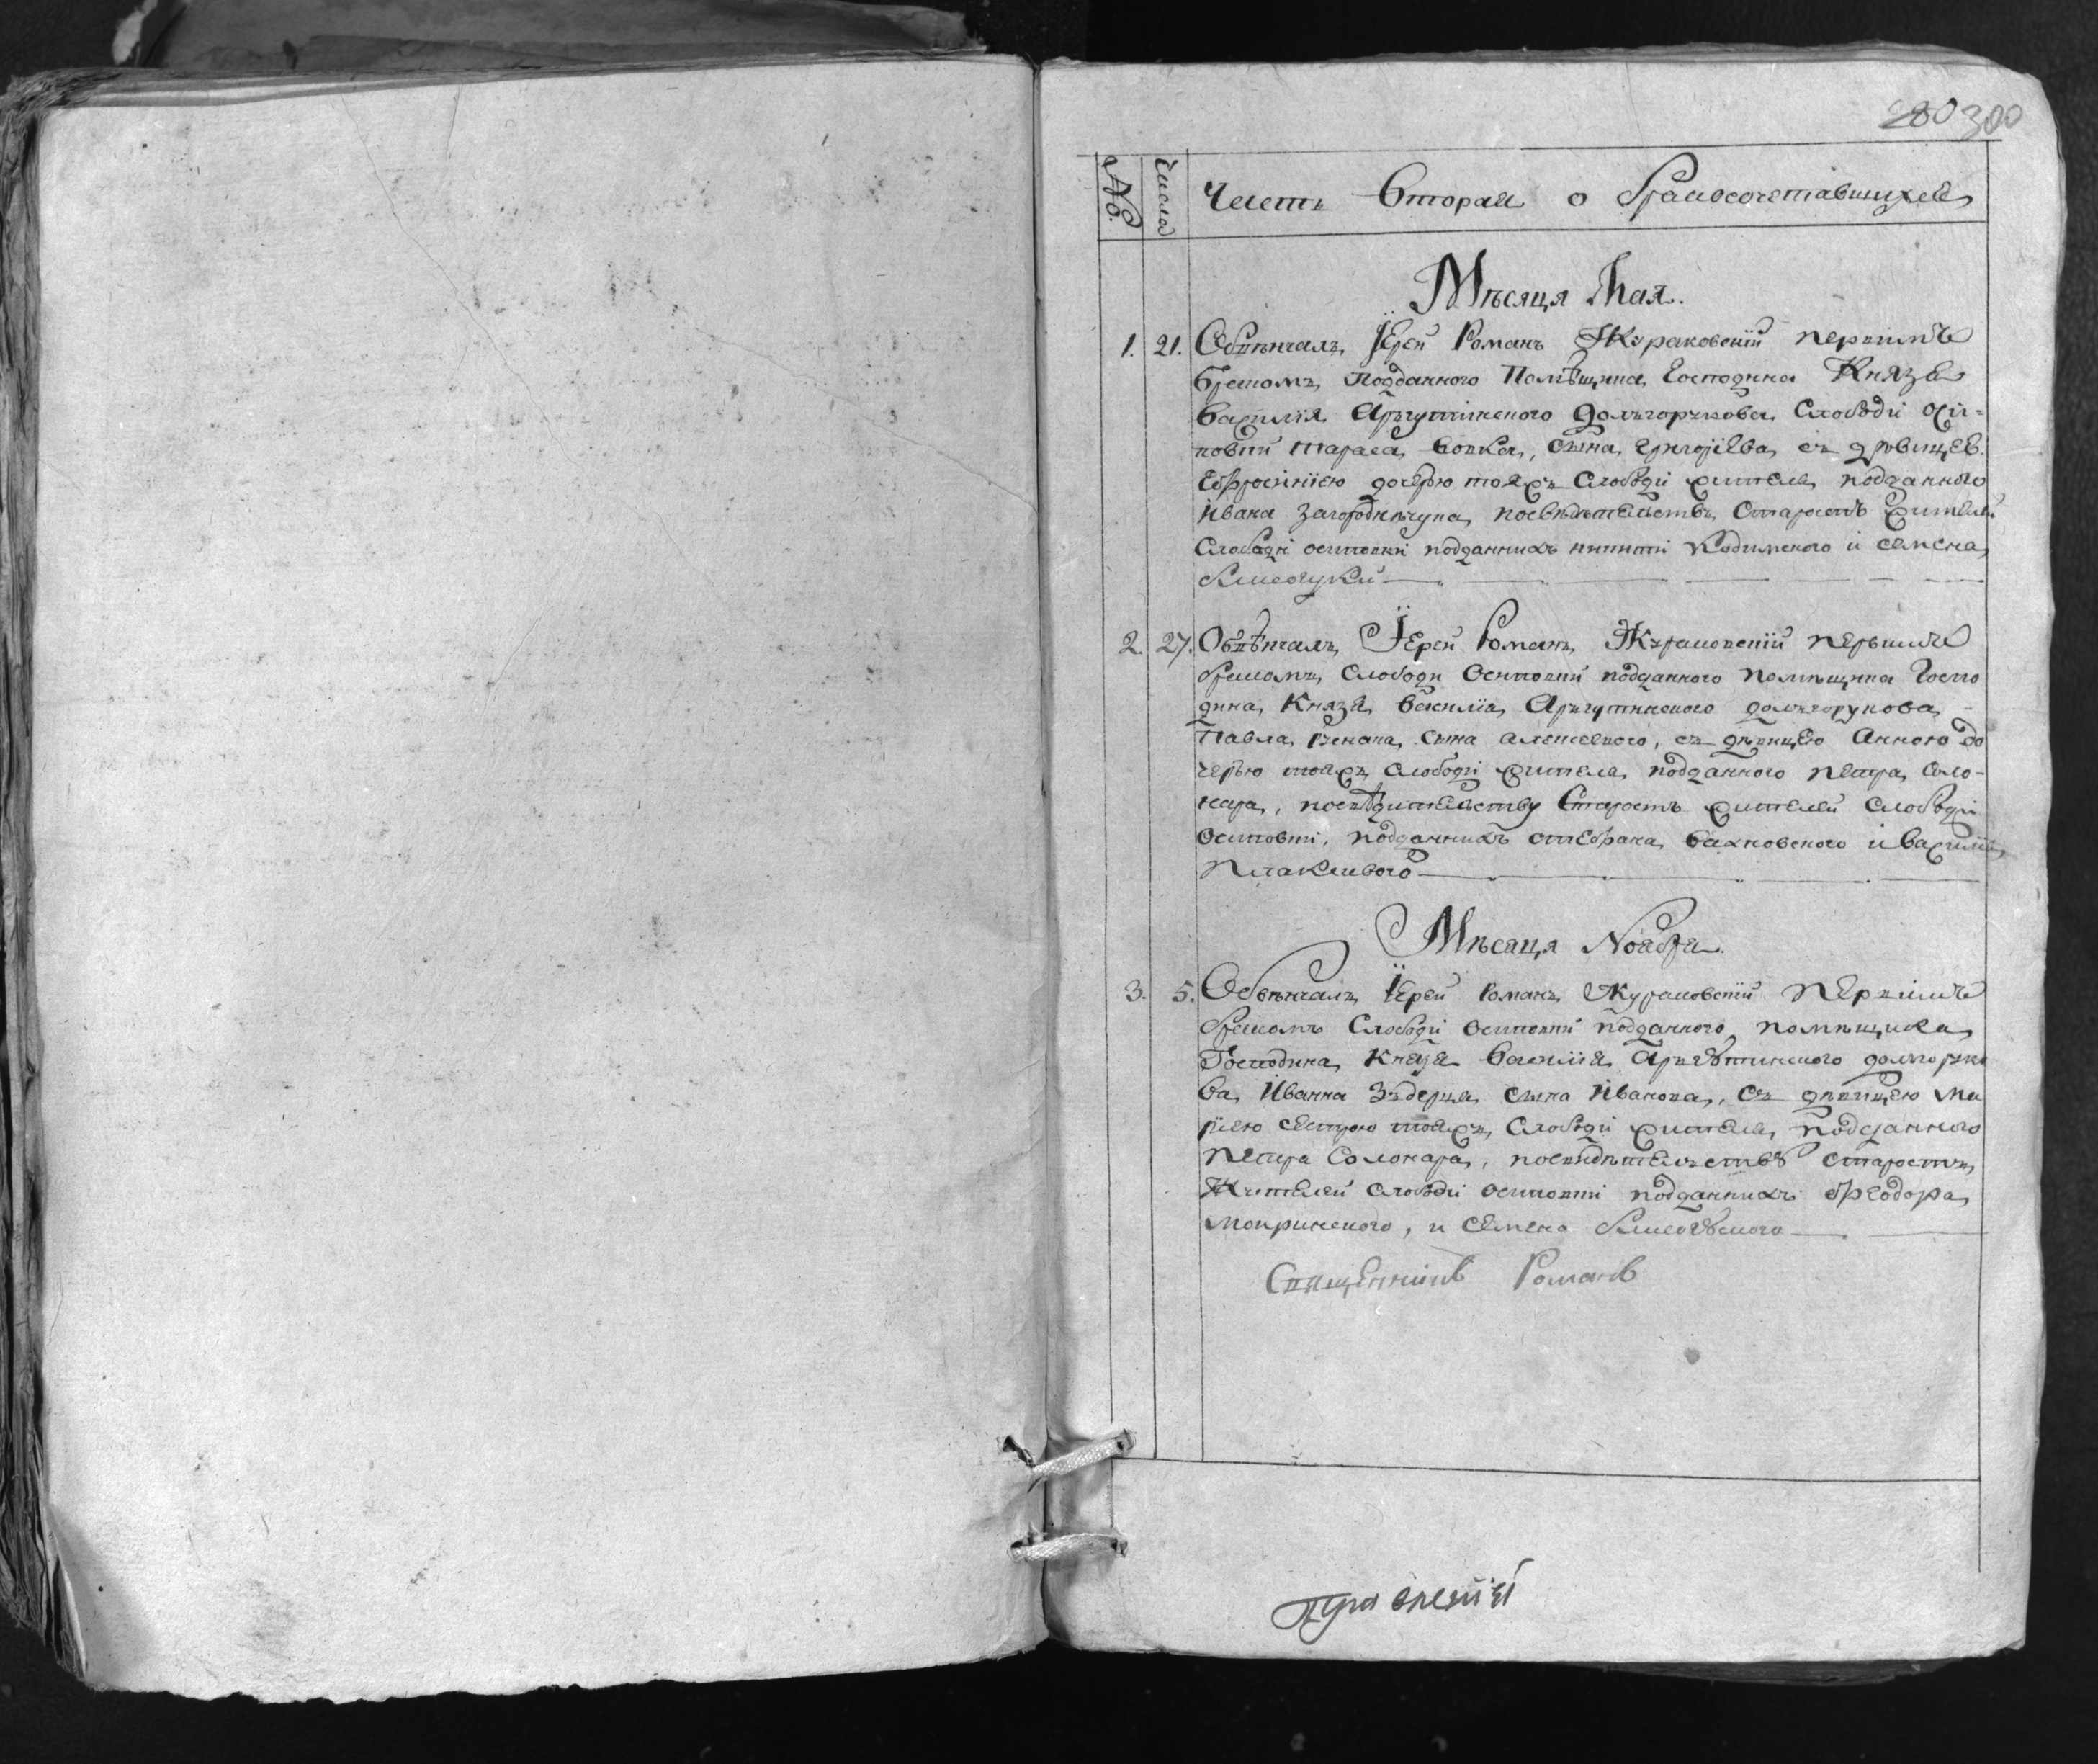 280 300
№. Числа Часть Вторая о бракосочетавшихся
Мѣсяця Мая.
1. 21. Обвѣнчалъ Іерей Романъ Жураковскій первимъ
бракомъ, подданного Помѣщика Господина Князя
Василія Аръгутинского Долъгорукова Слободи Оси-
повки Тараса Вовка, сына Григоріева, съ дѣвицею
Евфросиніею дочерю тояжъ Слободи жителя подданного
Ивана Загороднѣчука, посвѣдѣтельствѣ Старостъ жителей
Слободи осиповки подданнихъ никити Кодимского и семена
2. 27. Обвѣнчалъ Іерей Романъ Жураковскій первимъ
бракомъ, Слободи Осиповки подданного помѣщика Госпо
дина Князя Василія Аръгутинского долъгорукова
Павла сына алексеевого, съ дѣвицею Анною до
черью тояжъ слободи жителя подданного петра Соло-
нара, посвѣдителству Старостъ жителей слободи
Осиповки, подданнихъ стефана Вахновского и василія
Плаксивого
Мѣсяця Ноября.
3. 5. Обвѣнчалъ Іерей Романъ Жураковскій первимъ
бракомъ Слободи Осиповки подданного помѣщика
Господина Князя Василія Аръгутинского долгоруко
ва, Иванна сына Иванова, съ дѣвицею Ма
ріею сестрою тояжъ Слободи жителя подданного
петра Солонара, посвидѣтелъствѣ старостъ,
Жителей слободи осиповки подданнихъ Феодора
Мокринского, и семена
Священникъ Романъ